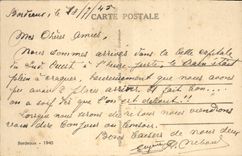 Bordeaux le 20/7/45
CARTE POSTALE
Mes Chers Amies,
Nous sommes arrivés dans la belle capitale
du Sud Ouest à l'heure juste, le train était
plein à craquer, heureusement que nous avons
pu avoir 2 places arrière et fait bon
on a soif dès que l'on
Lorsque nous serons de retour nous viendrons
vous dire bonjour au
Bons baisers de nous deux
Bordeaux - 1945